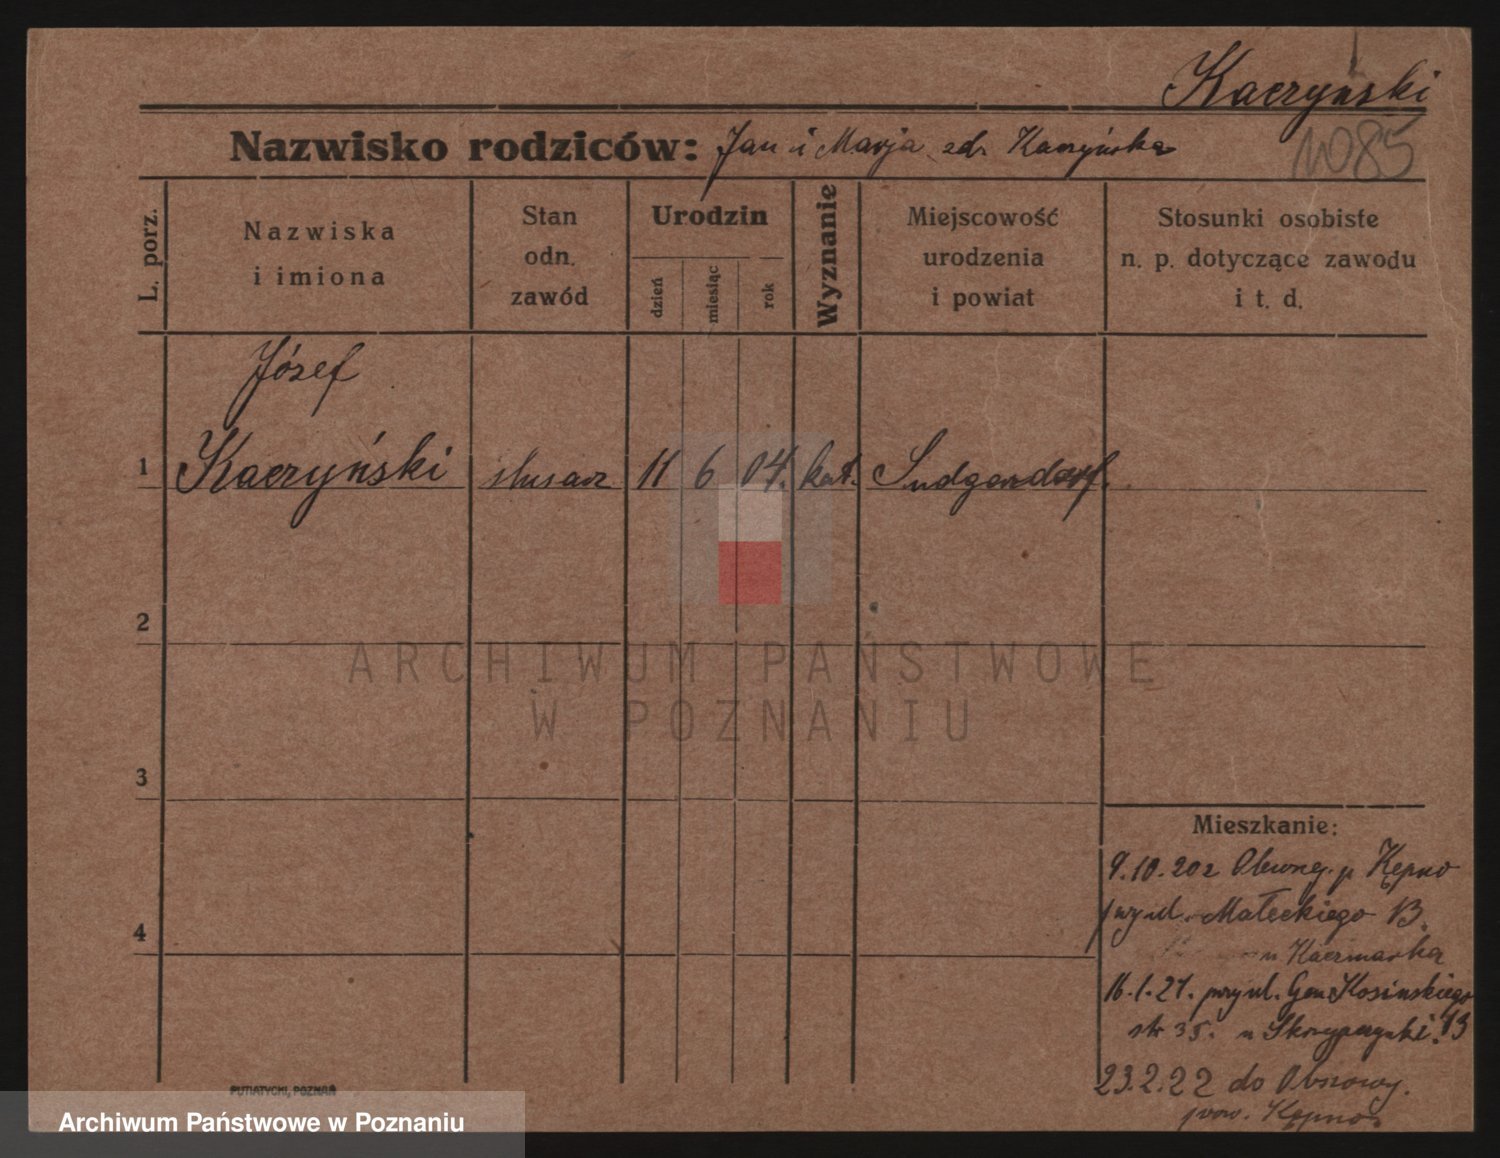 Kaczyński
Nazwisko rodziców: Jan i Marja zdr Kaczyńska
1085
L. porz.
Nazwiska
i imiona
Stan
odn.
zawód
Urodzin
dzień
miesiąc
rok
Wyznanie
Miejscowość
urodzenia
i powiat
Stosunki osobiste
n. p. dotyczące zawodu
i t. d.
Józef
1 Kaczyński ślusarz 11 6 04. kat. Sudgendorf.
2
ARCHIWUM PAŃSTWOWE
W POZNANIU
3
4
Mieszkanie:
9.10.20 z p Kępno
przy ul. Małeckiego 13.
u Kaczmarka
16.1.21. przy ul. Gen Kosinskiego
str 35. u 13
23.2.22 do
pow. Kępno
PUTIATYCKI, POZNAŃ
Archiwum Państwowe w Poznaniu